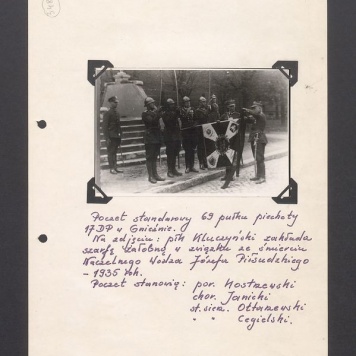 Poczet sztandarowy 69 pułku piechoty
17DP w Gnieźnie.
Na zdjęciu: płk Kluczyński zakłada
szarfę żałobną w związku ze śmiercią
Naczelnego Wodza Józefa Piłsudskiego
- 1935 rok.
Poczet stanowią: por. Mostrzewski
chor. Janicki
st. sierż. Ottarzewski
" " Cegielski.